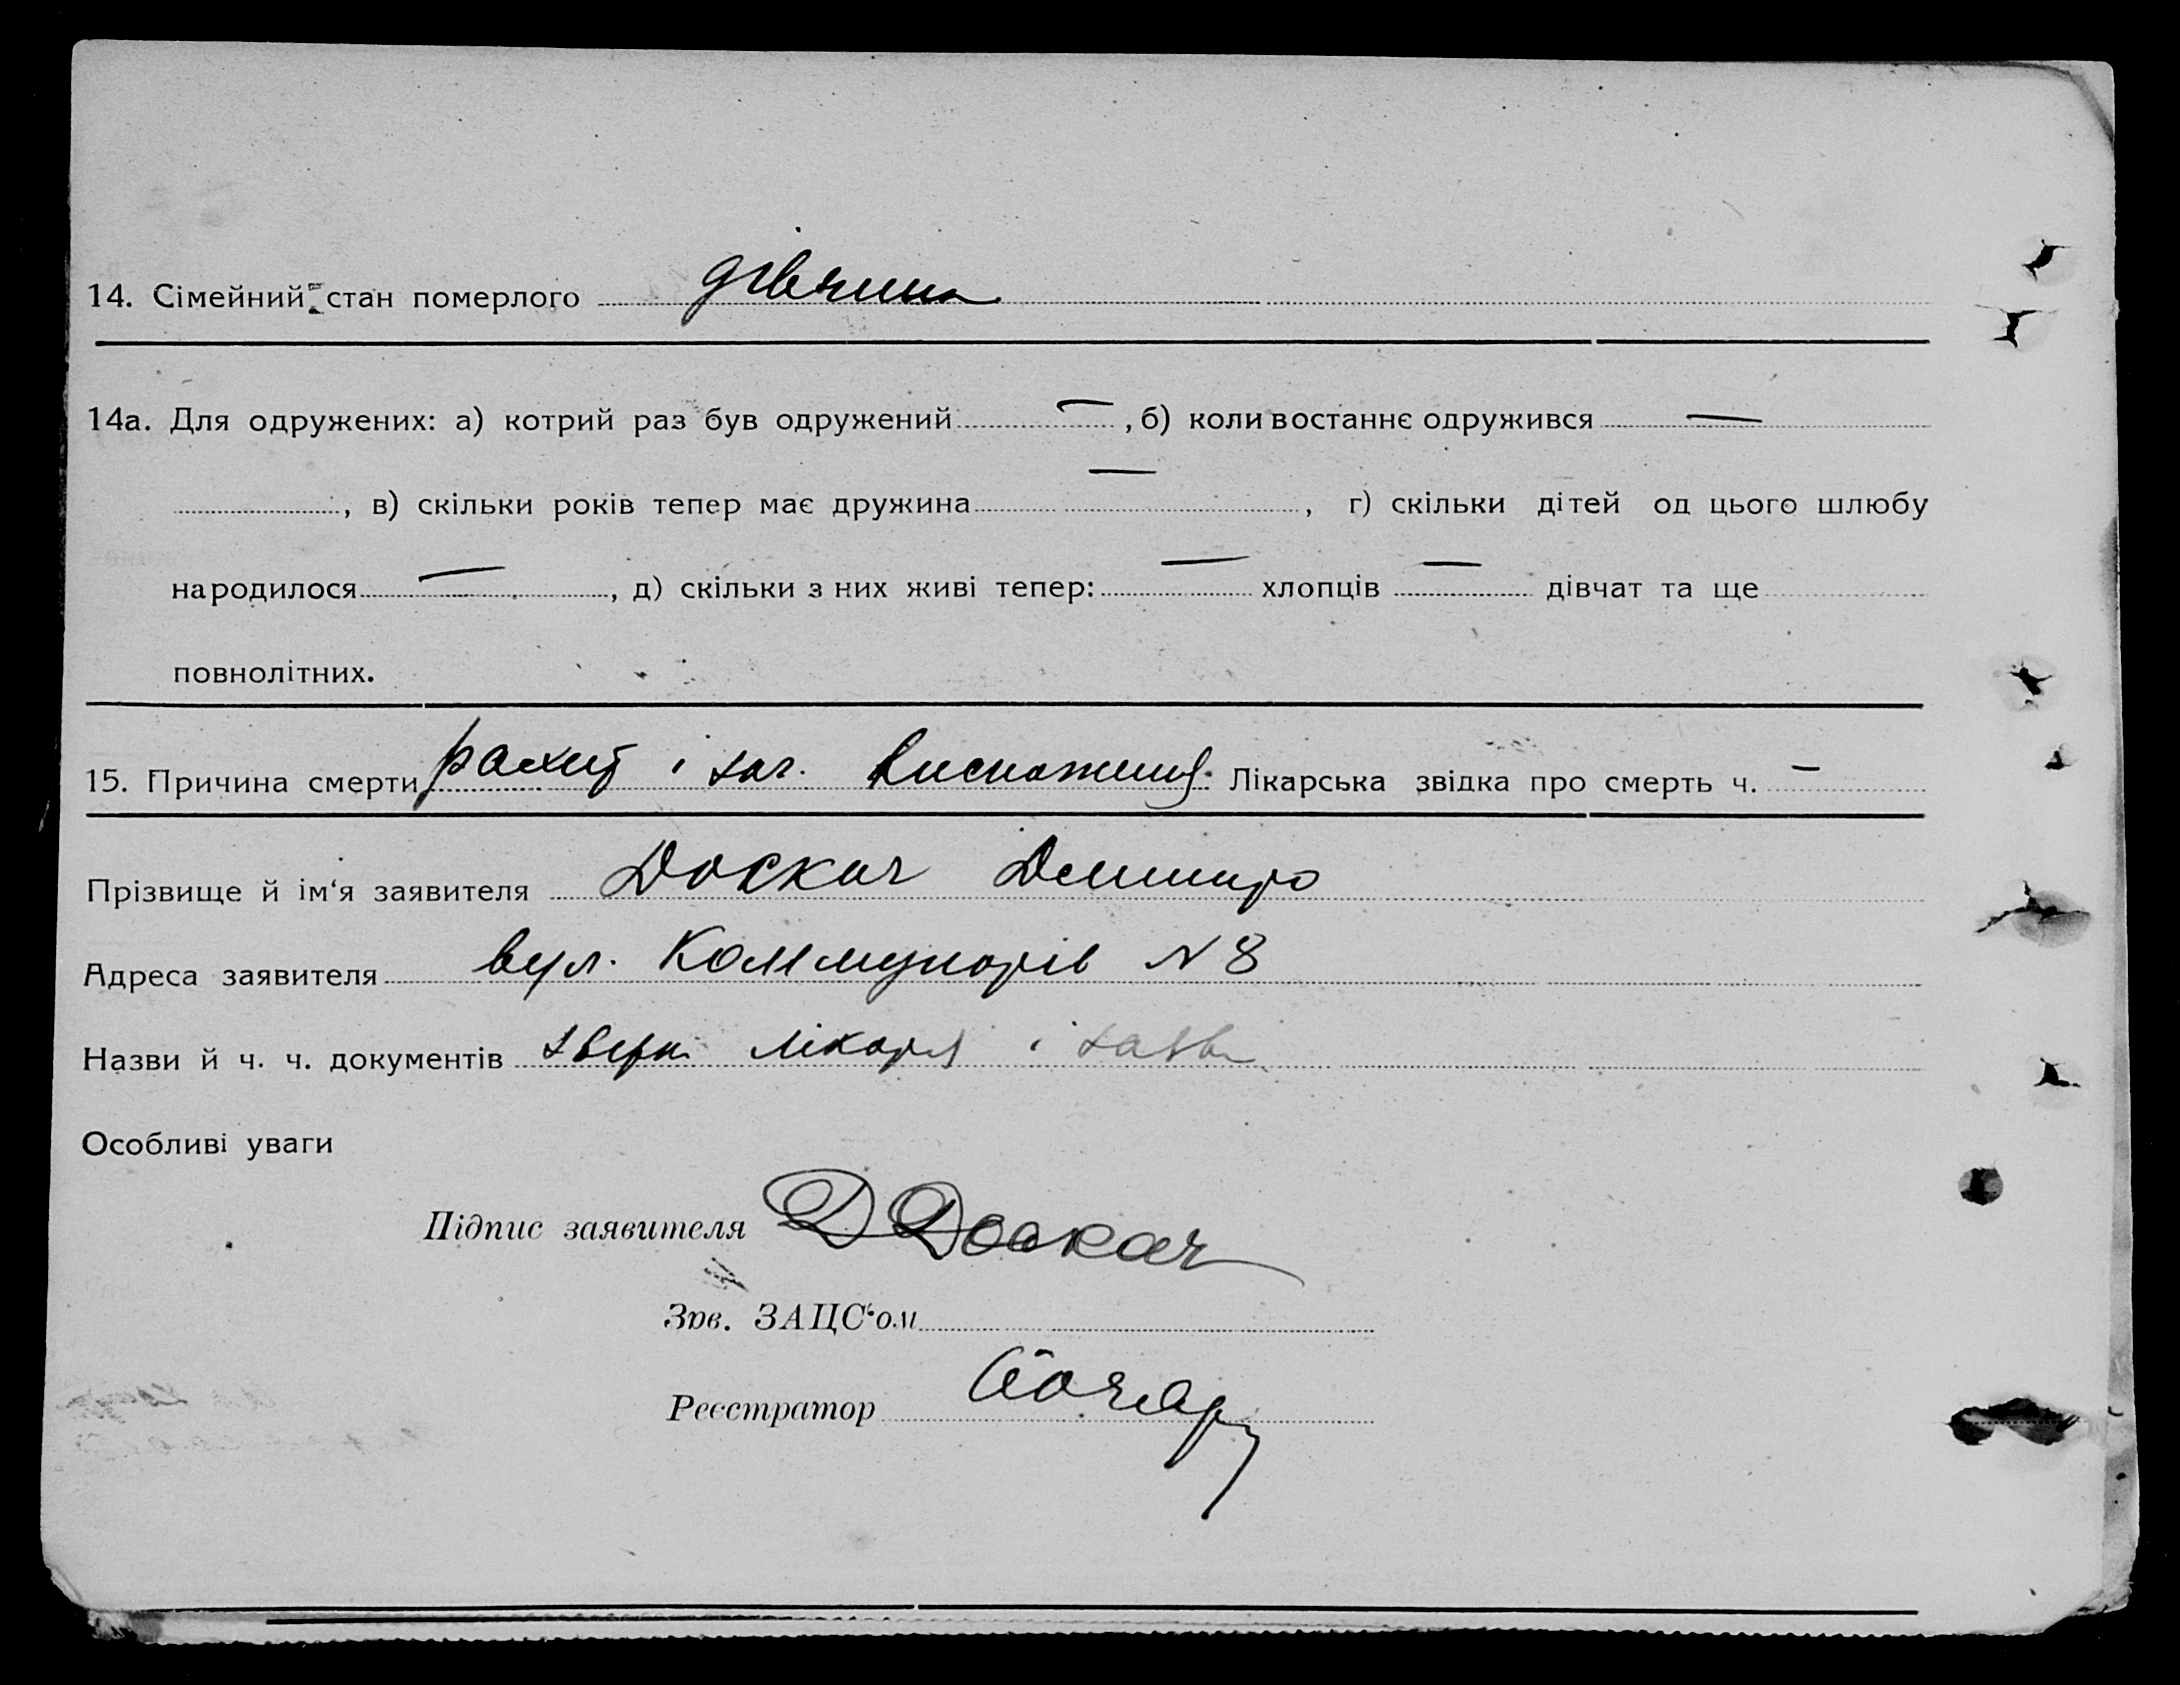 14. Сімейний стан померлого дівчина
14а. Для одружених: а) котрий раз був одружений — , б) коли востаннє одружився —
, в) скільки років тепер має дружина — , г) скільки дітей од цього шлюбу
народилося — , д) скільки з них живі тепер: — хлопців — дівчат та ще
повнолітних.
15. Причина смерти рахит і заг. виснажения. Лікарська звідка про смерть ч. —
Прізвище й ім‘я заявителя Доскач Дмитро
Адреса заявителя вул. Коммунарів N 8
Назви й ч. ч. документів лікаря і заяв
Особливі уваги
Підпис заявителя Д Доскач
Зав. ЗАЦС‘ом
Реєстратор